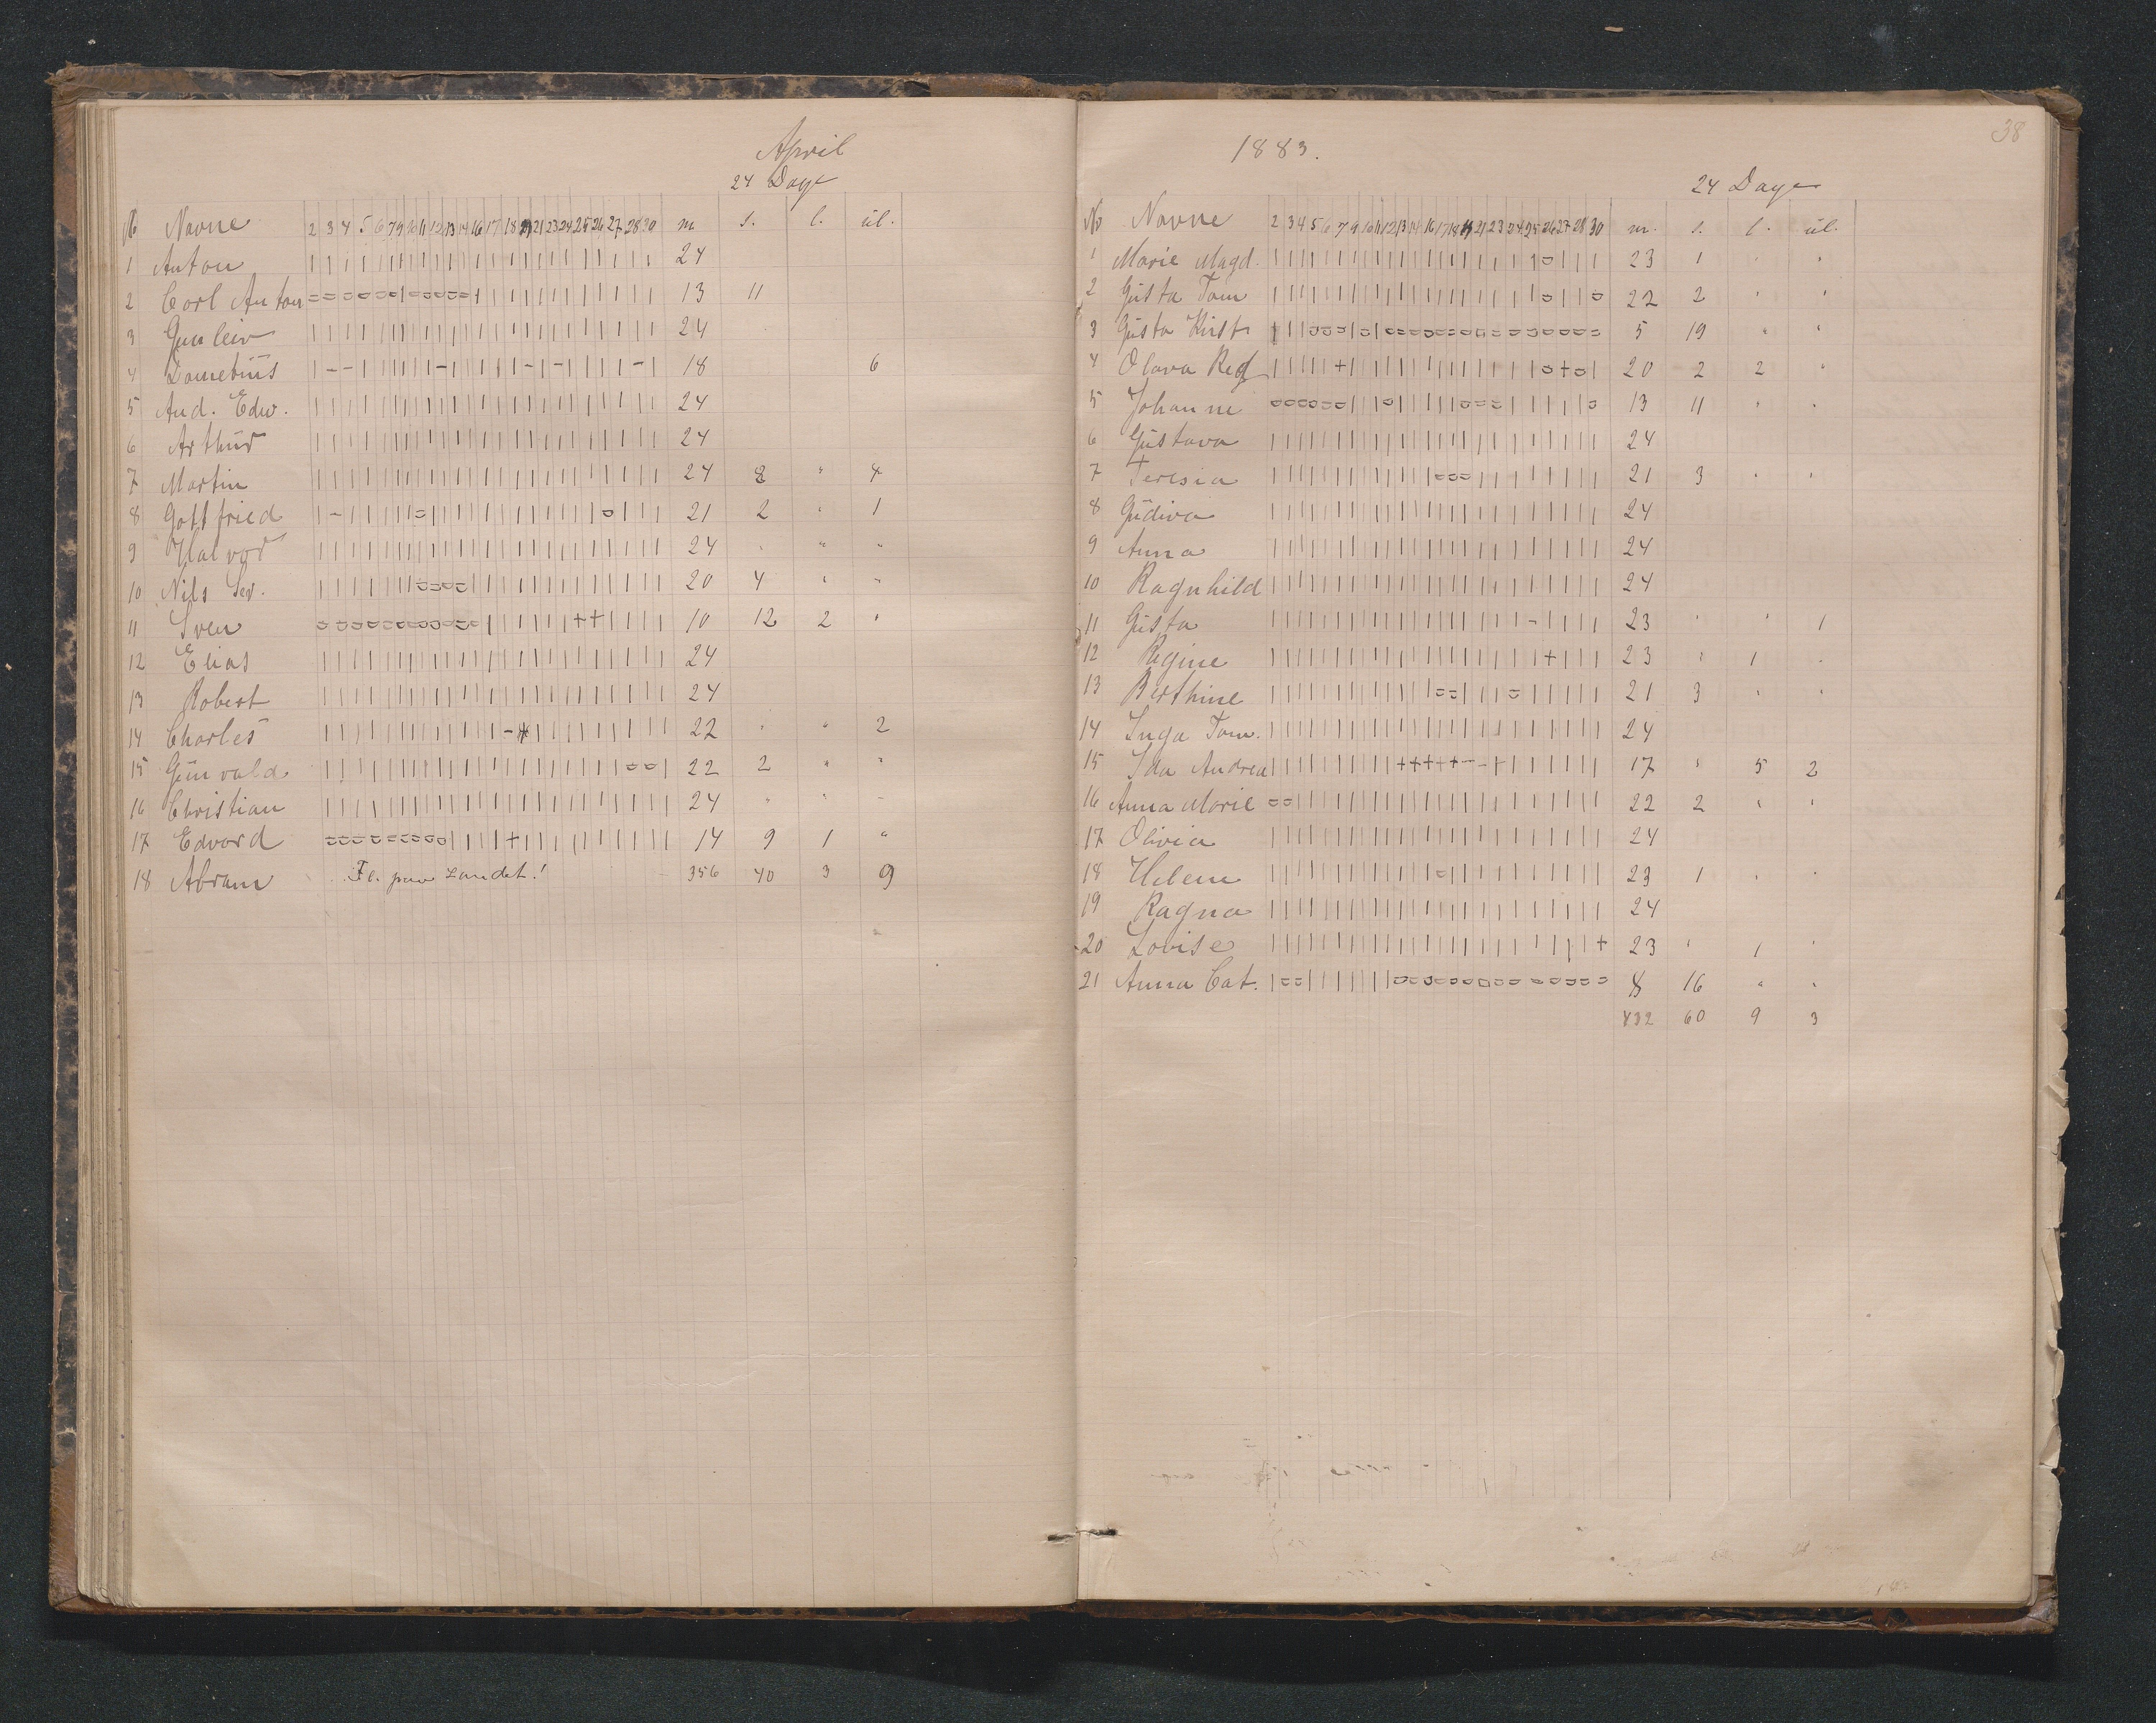 April
24 Dage
№ Navne 2 3 4 5 6 7 9 10 11 12 13 14 16 17 18 19 21 23 24 25 26 27 28 30 m s. l. ul.
1 Anton 24
2 Carl Anton 13 11
3 Gunleiv 24
4 18 6
5 And. Edw. 24
6 Arthur 24
7 Martin 24 8 " 4
8 Gottfried 21 2 " 1
9 Halvor 24 " " "
10 Nils Sev. 20 4 " "
11 Sven 10 12 2 "
12 Elias 24
13 Robert 24
14 Charles 22 " " 2
15 Gunvald 22 2 " "
16 Christian 24 " " "
17 Edvard 14 9 1 "
18 Abram Fl. paa Landet! 356 40 3 9
1883.
38
24 Dage
No Navne 2 3 4 5 6 7 9 10 11 12 13 14 16 17 18 19 21 23 24 25 26 27 28 30 m. s. l. ul.
1 Marie Magd. 23 1 " "
2 Gusta Tom 22 2 " "
3 Gusta Kirst 5 19 " "
4 Olava 20 2 2 "
5 Johanne 13 11 " "
6 Gustava 24
7 Teresia 21 3 " "
8 Gudiva 24
9 Anna 24
10 Ragnhild 24
11 Gusta 23 " " 1
12 Regine 23 " 1 "
13 Berthine 21 3 " "
14 Inga Tom. 24
15 Ida Andrea 17 " 5 2
16 Anna Marie 22 2 " "
17 Olivia 24
18 Helene 23 1 " "
19 Ragna 24
20 Lovise 23 " 1 "
21 Anna Cat. 8 16 " "
432 60 9 3